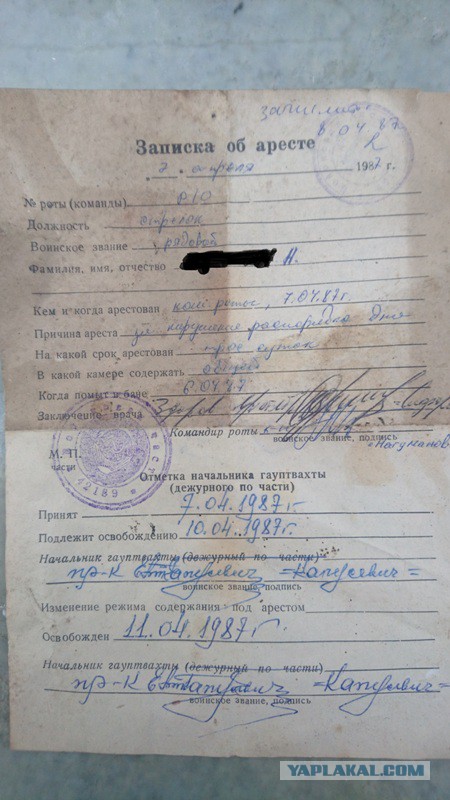 8 04 87
Записка об аресте
7 апреля 1987 г.
№ роты (команды)
Должность стрелок
Воинское звание рядовой
Фамилия, имя, отчество А.
Кем и когда арестован ком. роты, 7.04.87г.
Причина ареста за нарушение распорядка дня
На какой срок арестован трое суток
В какой камере содержать общей
Когда помыт в бане 6.04.87
Заключение врача Здоров
Командир роты
воинское звание, подпись
М. П.
части
42189
Отметка начальника гауптвахты
(дежурного по части)
Принят 7.04.1987г.
Подлежит освобождению 10.04.1987г.
Начальник гауптвахты (дежурный по части)
пр-к =Капусевич=
воинское звание, подпись
Изменение режима содержания под арестом
Освобожден 11.04.1987г
Начальник гауптвахты (дежурный по части)
пр-к =Капусевич=
воинское звание, подпись
YAPLAKAL.COM